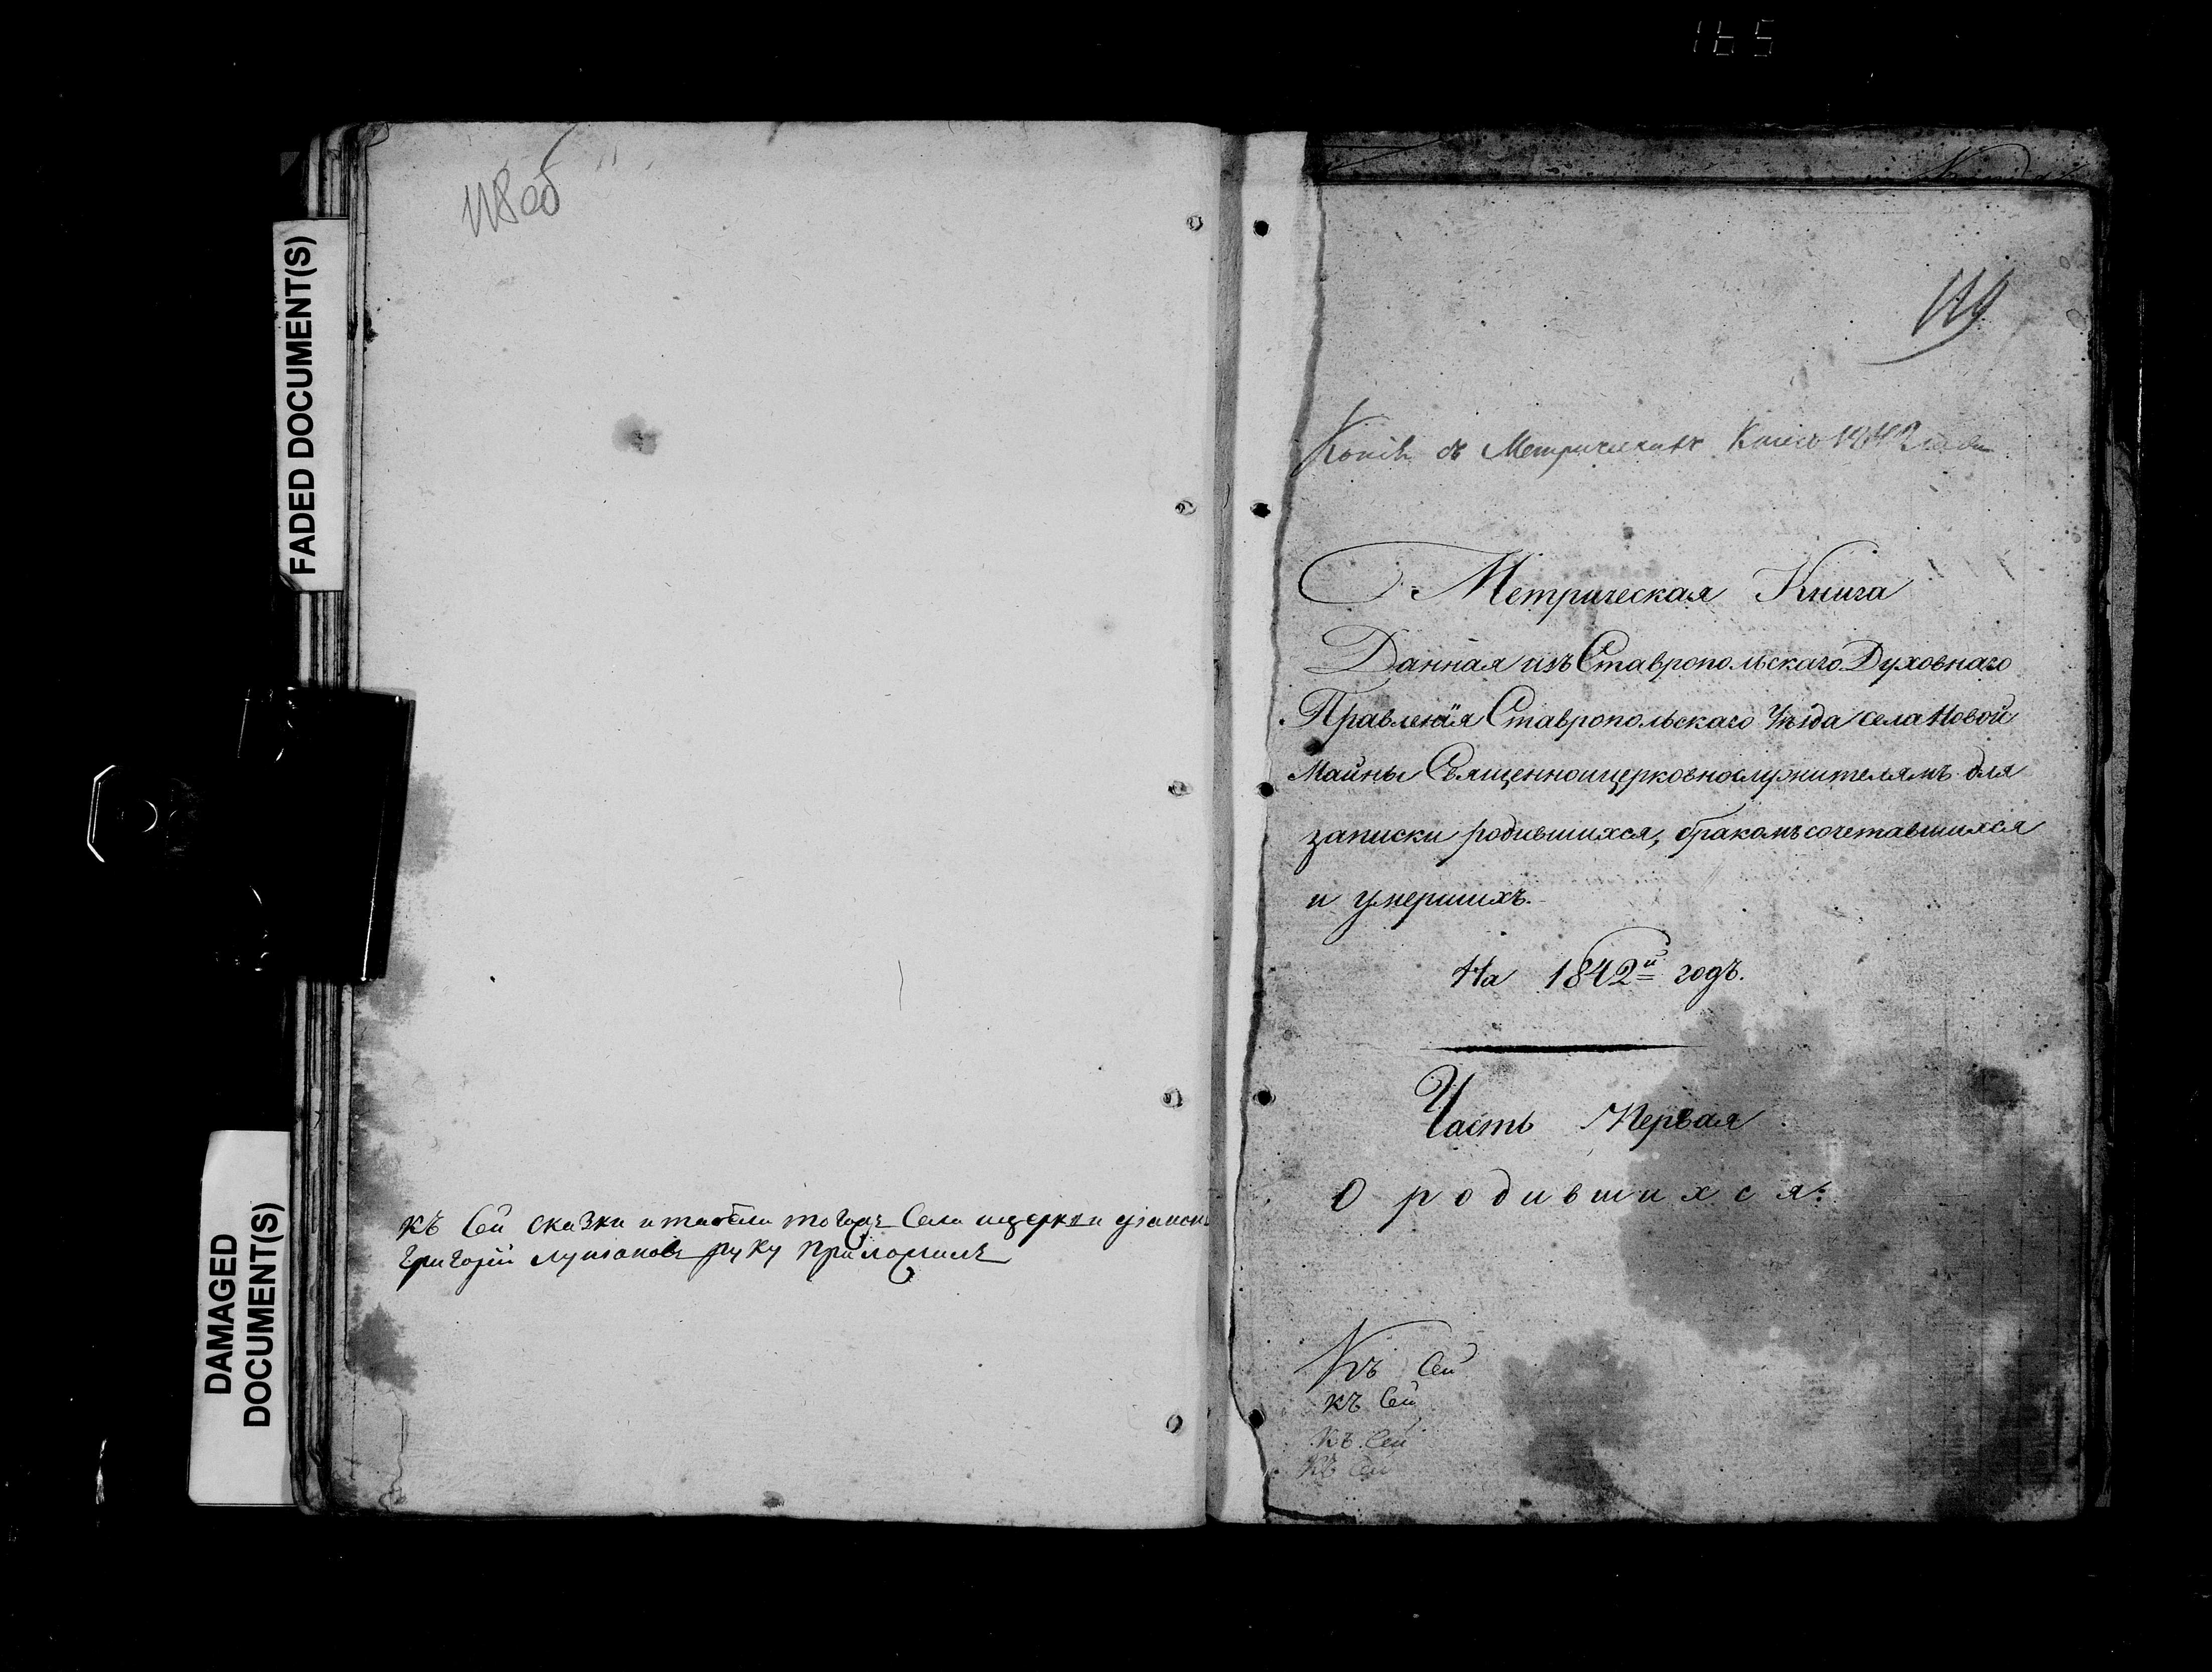 165
FADED DOCUMENT(S)
DAMAGED
DOCUMENT(S)
118 об
къ сей сказки и табели тогожъ Села ицеркви
григорїй руку приложилъ
119
Копія съ Метрическихъ Книгъ 1842 года
Метрическая Книга
Данная изъ Ставропольскаго Духовнаго
Правленїя Ставропольскаго Уѣзда села Новой
Майны Священноицерковнослужителямъ для
записки родившихся, бракомъ сочетавшихся
и умершихъ.
На 1842й годъ.
Часть Первая
О родившихся:
Къ Сей
къ Сей
Къ Сей
Къ Сей